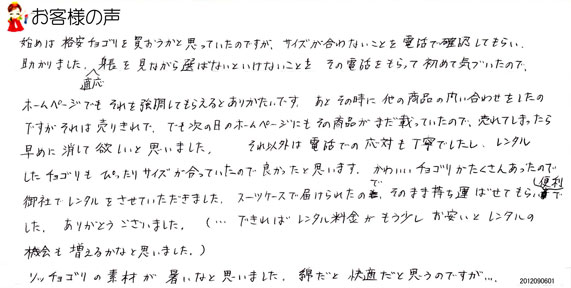 お客様の声
始めは格安チョゴリを買おうかと思っていたのですが、サイズが合わないことを電話で確認してもらい、
助かりました。身長を見ながら選ばないといけないことを その電話をもらって初めて気づいたので、
適応
ホームページでも それを強調してもらえるとありがたいです。あと その時に 他の商品の問い合わせをしたの
ですが それは 売りきれで、でも次の日のホームページにもその商品がまだ載っていたので、売れてしまったら
早めに消して欲しいと思いました。 それ以外は電話での応対も丁寧でしたし、レンタル
したチョゴリも ぴったりサイズが合っていたので良かったと思います。かわいいチョゴリがたくさんあったので
御社でレンタルをさせていただきました。スーツケースで届けられたので、そのまま持ち運ばせてもらい便利で
した。ありがとうございました。(… できれば レンタル料金が もう少し お安いと レンタルの
機会も 増えるかなと思いました。)
ソッチョゴリの素材が 暑いなと思いました。綿だと 快適だと思うのですが…。
2012090601